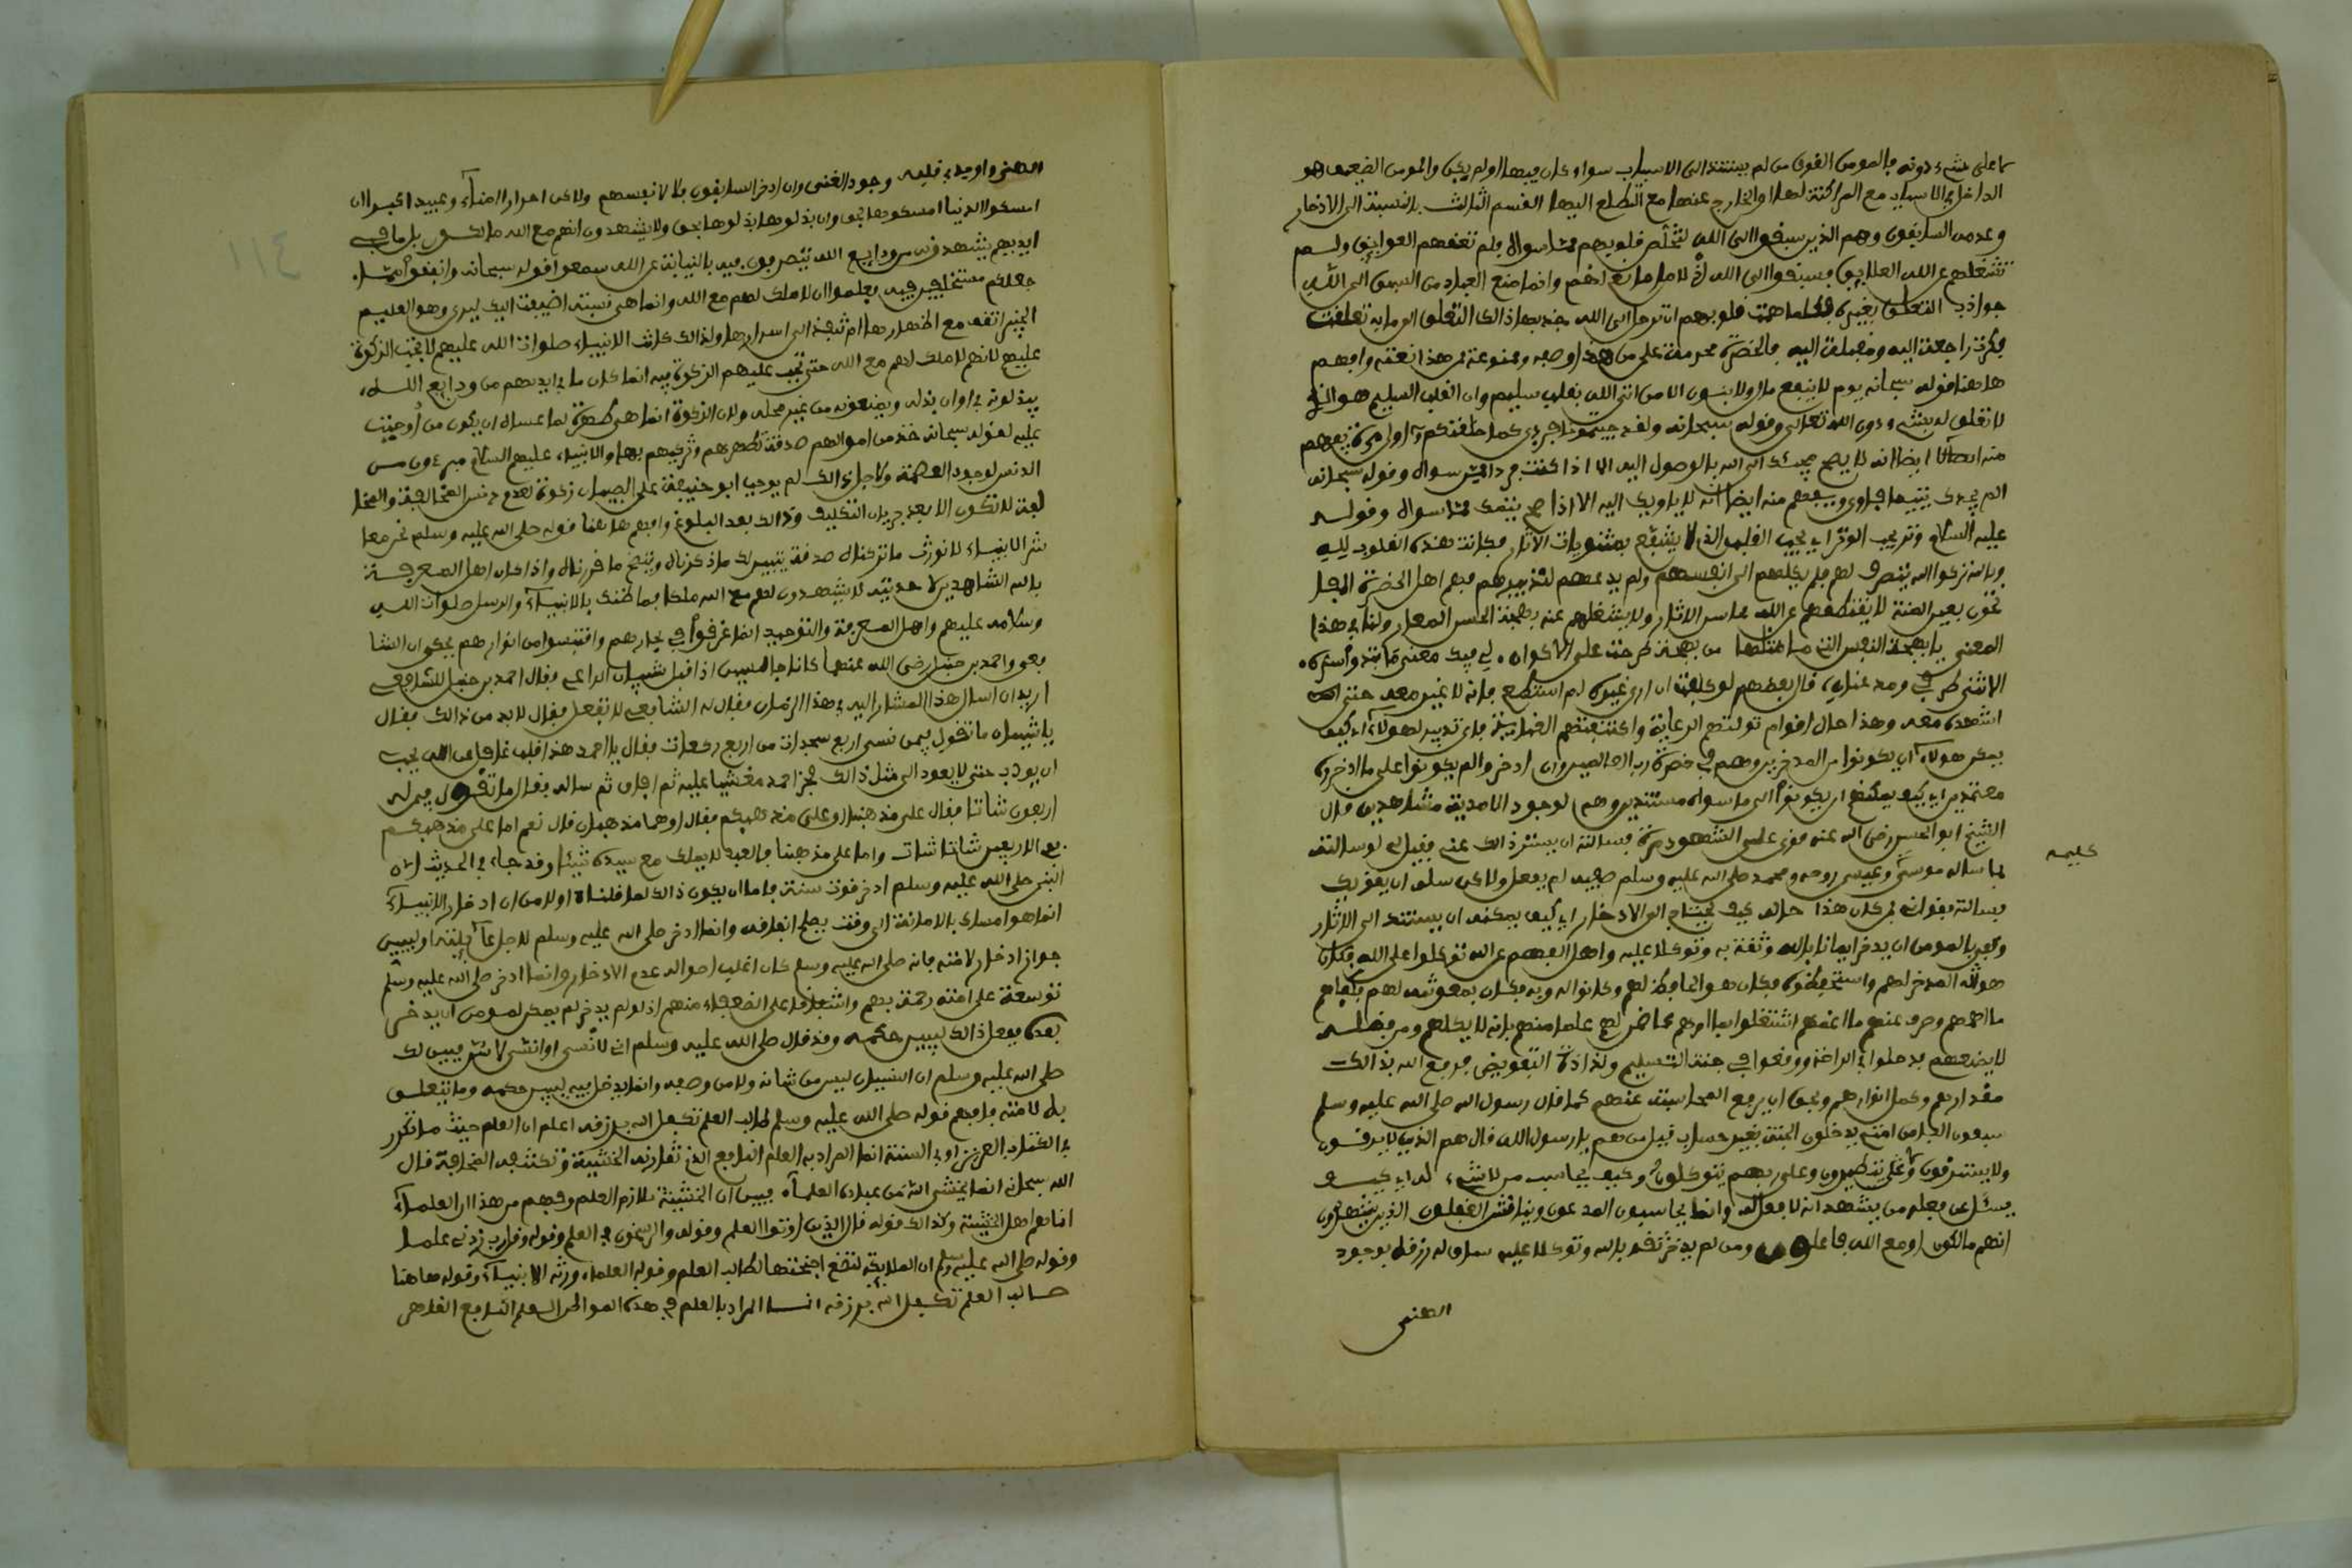 ما على شيء دونه فالمومن القوى من لم يستند الى الاسباب سواء كان فيها اولم يكن والمومن الضعيف هو
الداخل في الاسباب مع المراكنة لها او الخارج عنها مع التطلع اليها القسم الثالث بالنسبة الى الادخار
وعدمه السابقون وهم الذين سبقوا الى الله لتخلص قلوبهم مما سواه فلم تعقهم العوايق ولم
تشغلهم عن الله العلايق فسبقوا الى الله اذ لا مانع لهم وانما منع العباد من السبق الى الله
جواذب التعلق بغيره فكلما همت قلوبهم ان ترحل الى الله جذبها ذالك التعلق الى ما به تعلقت
فكرت راجعة اليه ومقبلة اليه فالحضرة محرمة على من هذا وصفه وممنوعة ممن هذا نعته وافهم
هاهنا قوله سبحانه يوم لا ينفع مال ولا بنون الا من اتى الله بقلب سليم وان القلب السليم هو الذي
لا تعلق له بشيء دون الله تعالى وقوله سبحانه ولقد جيتمونا فرادى كما خلقنكم اول مرة يفهم
منه ايضا انه لا يصح مجيئك الى الله بالوصول اليه الا اذا كنت فردا مما سواه وقوله سبحانه
الم يجدك يتيما فاوى ويفهم منه ايضا انه لا ياويك اليه الا اذا صح يتمك مما سواه وقوله
عليه السلام وتر يحب الوتر اي يحب القلب الذي لا يشفع بمثنويات الاثار فكانت هذه القلوب لله
وبالله تركوا الله يتصرف لهم فلم يكلهم الى انفسهم ولم يدعهم لتدبيرهم فهم اهل الحضرة المفا
تحون بعين المنة لا يقتطعهم عن الله محاسن الاثار ولا يشغلهم عنه بهجة الحسن المعار ولنا في هذا
المعنى يا بهجة الحسن التي ما مثلها من بهجة طرحت على الاكوان
الا انثنى طرفي ومد عناني قال بعضهم لو كلفت ان ارى غيره لم استطع فانه لا غير معه حتى
اشهده معه وهذا حال اقوام تولتهم الرعاية واكتنفتهم العناية فاي تدبير لهولاء اي كيف
يمكن هولاء ان يكونوا من المدخرين وهم في حضرة رب العالمين وان ادخروا لم يكونوا على ما ادخروه
معتمدين اي كيف يمكنهم ان يكونوا الى ما سواه مستندين وهم لوجود الاحدية مشاهدين قال
الشيخ ابو الحسن رضي الله عنه قوى علي الشهود مرة فسالته ان يستر ذالك عني فقيل لي لو سالته
كليمه
بما ساله موسى وعيسى روحه ومحمد صلى الله عليه وسلم صفيه لم يفعل ولاكن سله ان يقويك
فسالته فقواني فمن كان هذا حاله كيف يحتاج الى الادخار اي كيف يمكنه ان يستند الى الاثار
وكفى بالمومن ان يدخر ايمانا بالله وثقة به وتوكلا عليه واهل الفهم عن الله توكلوا على الله فكان
هو الله المدخر لهم واستحفظوه فكان هو الحافظ لهم وكانوا له وبه فكان بمعونته لهم فكفاهم
ما اهمهم وصرف عنهم ما اغمهم اشتغلوا بما امرهم عما ضمن لهم علما منهم بانه لا يكلهم ومن فضله
لا يمنعهم فدخلوا في الراحة ووقعوا في جنة التسليم ولذاذة التفويض فرفع الله بذالك
مقدارهم وكمل انوارهم وبحق ان يرفع المحاسبة عنهم كما قال رسول الله صلى الله عليه وسلم
سبعون الفا من امتي يدخلون الجنة بغير حساب قيل من هم يا رسول الله قال هم الذين لا يرقون
ولا يسترقون ولا يتطيرون وعلى ربهم يتوكلون وكيف يحاسب من لا شيء له اي كيف
يسئل عن فعله من يشهد انه لا فعل له وانما يحاسبون المدعون ويناقش الغفلون الذين يشهدون
انهم مالكون او مع الله فاعلون ومن لم يدخر ثقة بالله وتوكلا عليه ساق له رزقه بوجود
الهنى
الهنى واوجد في قلبه وجود الغنى وان ادخر السابقون فلا لانفسهم ولاكن احرارا امناء وعبيد اكبر ان
امسكوا الدنيا امسكوها بحق وان بذلوها بذلوها بحق ولا يشهدون انهم مع الله مالكون بل ما في
ايديهم يشهدونه من ودايع الله يتصرفون فيه بالنيابة عن الله سمعوا قوله سبحانه وانفقوا مما
جعلكم مستخلفين فيه فعلموا ان لا ملك لهم مع الله وانما هي نسبة اضيفت اليك ليرى وهو العليم
الخبير اتقف مع اظهارها ام تنفذ الى اسرارها ولذالك كانت الانبياء صلوات الله عليهم لا تجب الزكوة
عليهم لانهم لا ملك لهم مع الله حتى تجب عليهم الزكوة فيه انما كان ما في ايديهم من ودايع الله
يبذلونه في اوان بذله ويمنعونه من غير محله ولان الزكوة انما هي طهرة لما عساه ان يكون ممن اوجبت
عليه لقوله سبحانه خذ من اموالهم صدقة تطهرهم وتزكيهم بها والانبياء عليهم السلام مبرءون من
الدنس لوجود العصمة ولاجل ذالك لم يوجب ابو حنيفة على الصبيان زكوة لعدم دنس المخالفة والمخا
لفة لا تكون الا بعد جريان التكليف وذالك بعد البلوغ وافهم هاهنا قوله صلى الله عليه وسلم نحن معا
شر الانبياء لا نورث ما تركناه صدقة يتبين لك ما ذكرناه ويتضح ما قررناه واذا كان اهل المعرفة
بالله الشاهدين لاحديته لا يشهدون لهم مع الله ملكا فما ظنك بالانبياء والرسل صلوات الله
وسلامه عليهم واهل المعرفة والتوحيد انما غرفوا في بحارهم واقتبسوا من انوارهم يحكى ان الشا
فعي واحمد بن حنبل رضي الله عنهما كانا جالسين اذ اقبل شيبان الراعى فقال احمد بن حنبل للشافعى
اريد ان اسال هذا المشار اليه في هذا الزمان فقال له الشافعي لا تفعل فقال لا بد من ذالك فقال
يا شيبان ما تقول فيمن نسي اربع سجدات من اربع ركعات فقال يا احمد هذا قلب غافل عن الله يجب
ان يودب حتى لا يعود الى مثل ذالك فخر احمد مغشيا عليه ثم افاق ثم ساله فقال ما تقول فيمن له
اربعون شاتا فقال على مذهبنا او على مذهبكم فقال اوهما مذهبان قال نعم اما على مذهبكم
ففي الاربعين شاتا شات واما على مذهبنا فالعبد لا يملك مع سيده شيئا وقد جاء في الحديث ان
النبي صلى الله عليه وسلم ادخر قوت سنة فاما ان يكون ذالك لما قلناه اولا من ان ادخار الانبياء
انما هو امساك بالامانة الى وقت يصلح انفاقه وانما ادخر صلى الله عليه وسلم لاجل عائلته او ليبين
جواز ادخار لامته فانه صلى الله عليه وسلم كان اغلب احواله عدم الادخار وانما ادخر صلى الله عليه وسلم
توسعة على امته رحمة بهم واشفاقا على الضعفاء منهم اذ لو لم يدخر لم يمكن لمومن ان يدخر
بعده ففعل ذالك ليبين حكمه وقد قال صلى الله عليه وسلم اني لانسى او انسى لاسن فبين لك
صلى الله عليه وسلم ان النسيان ليس من شانه ولا من وصفه وانما يدخل فيه ليبين حكمه وما يتعلق
به لامته فافهم قوله صلى الله عليه وسلم طالب العلم تكفل الله برزقه اعلم ان العلم حيث ما تكرر
في الكتاب العزيز او في السنة انما المراد به العلم النافع الذي تقارنه الخشية وتكتنفه المخافة قال
الله سبحانه انما يخشى الله من عباده العلماء فبين ان الخشية تلازم العلم وفهم من هذا ان العلماء
انما هم اهل الخشية وكذالك قوله قال الذين اوتوا العلم وقوله والراسخون في العلم وقوله وقل رب زدني علما
وقوله صلى الله عليه وسلم ان الملايكة لتضع اجنحتها لطالب العلم وقوله العلماء ورثة الانبياء وقوله هاهنا
طالب العلم تكفل الله برزقه انما المراد بالعلم في هذه المواطن العلم النافع القاهر